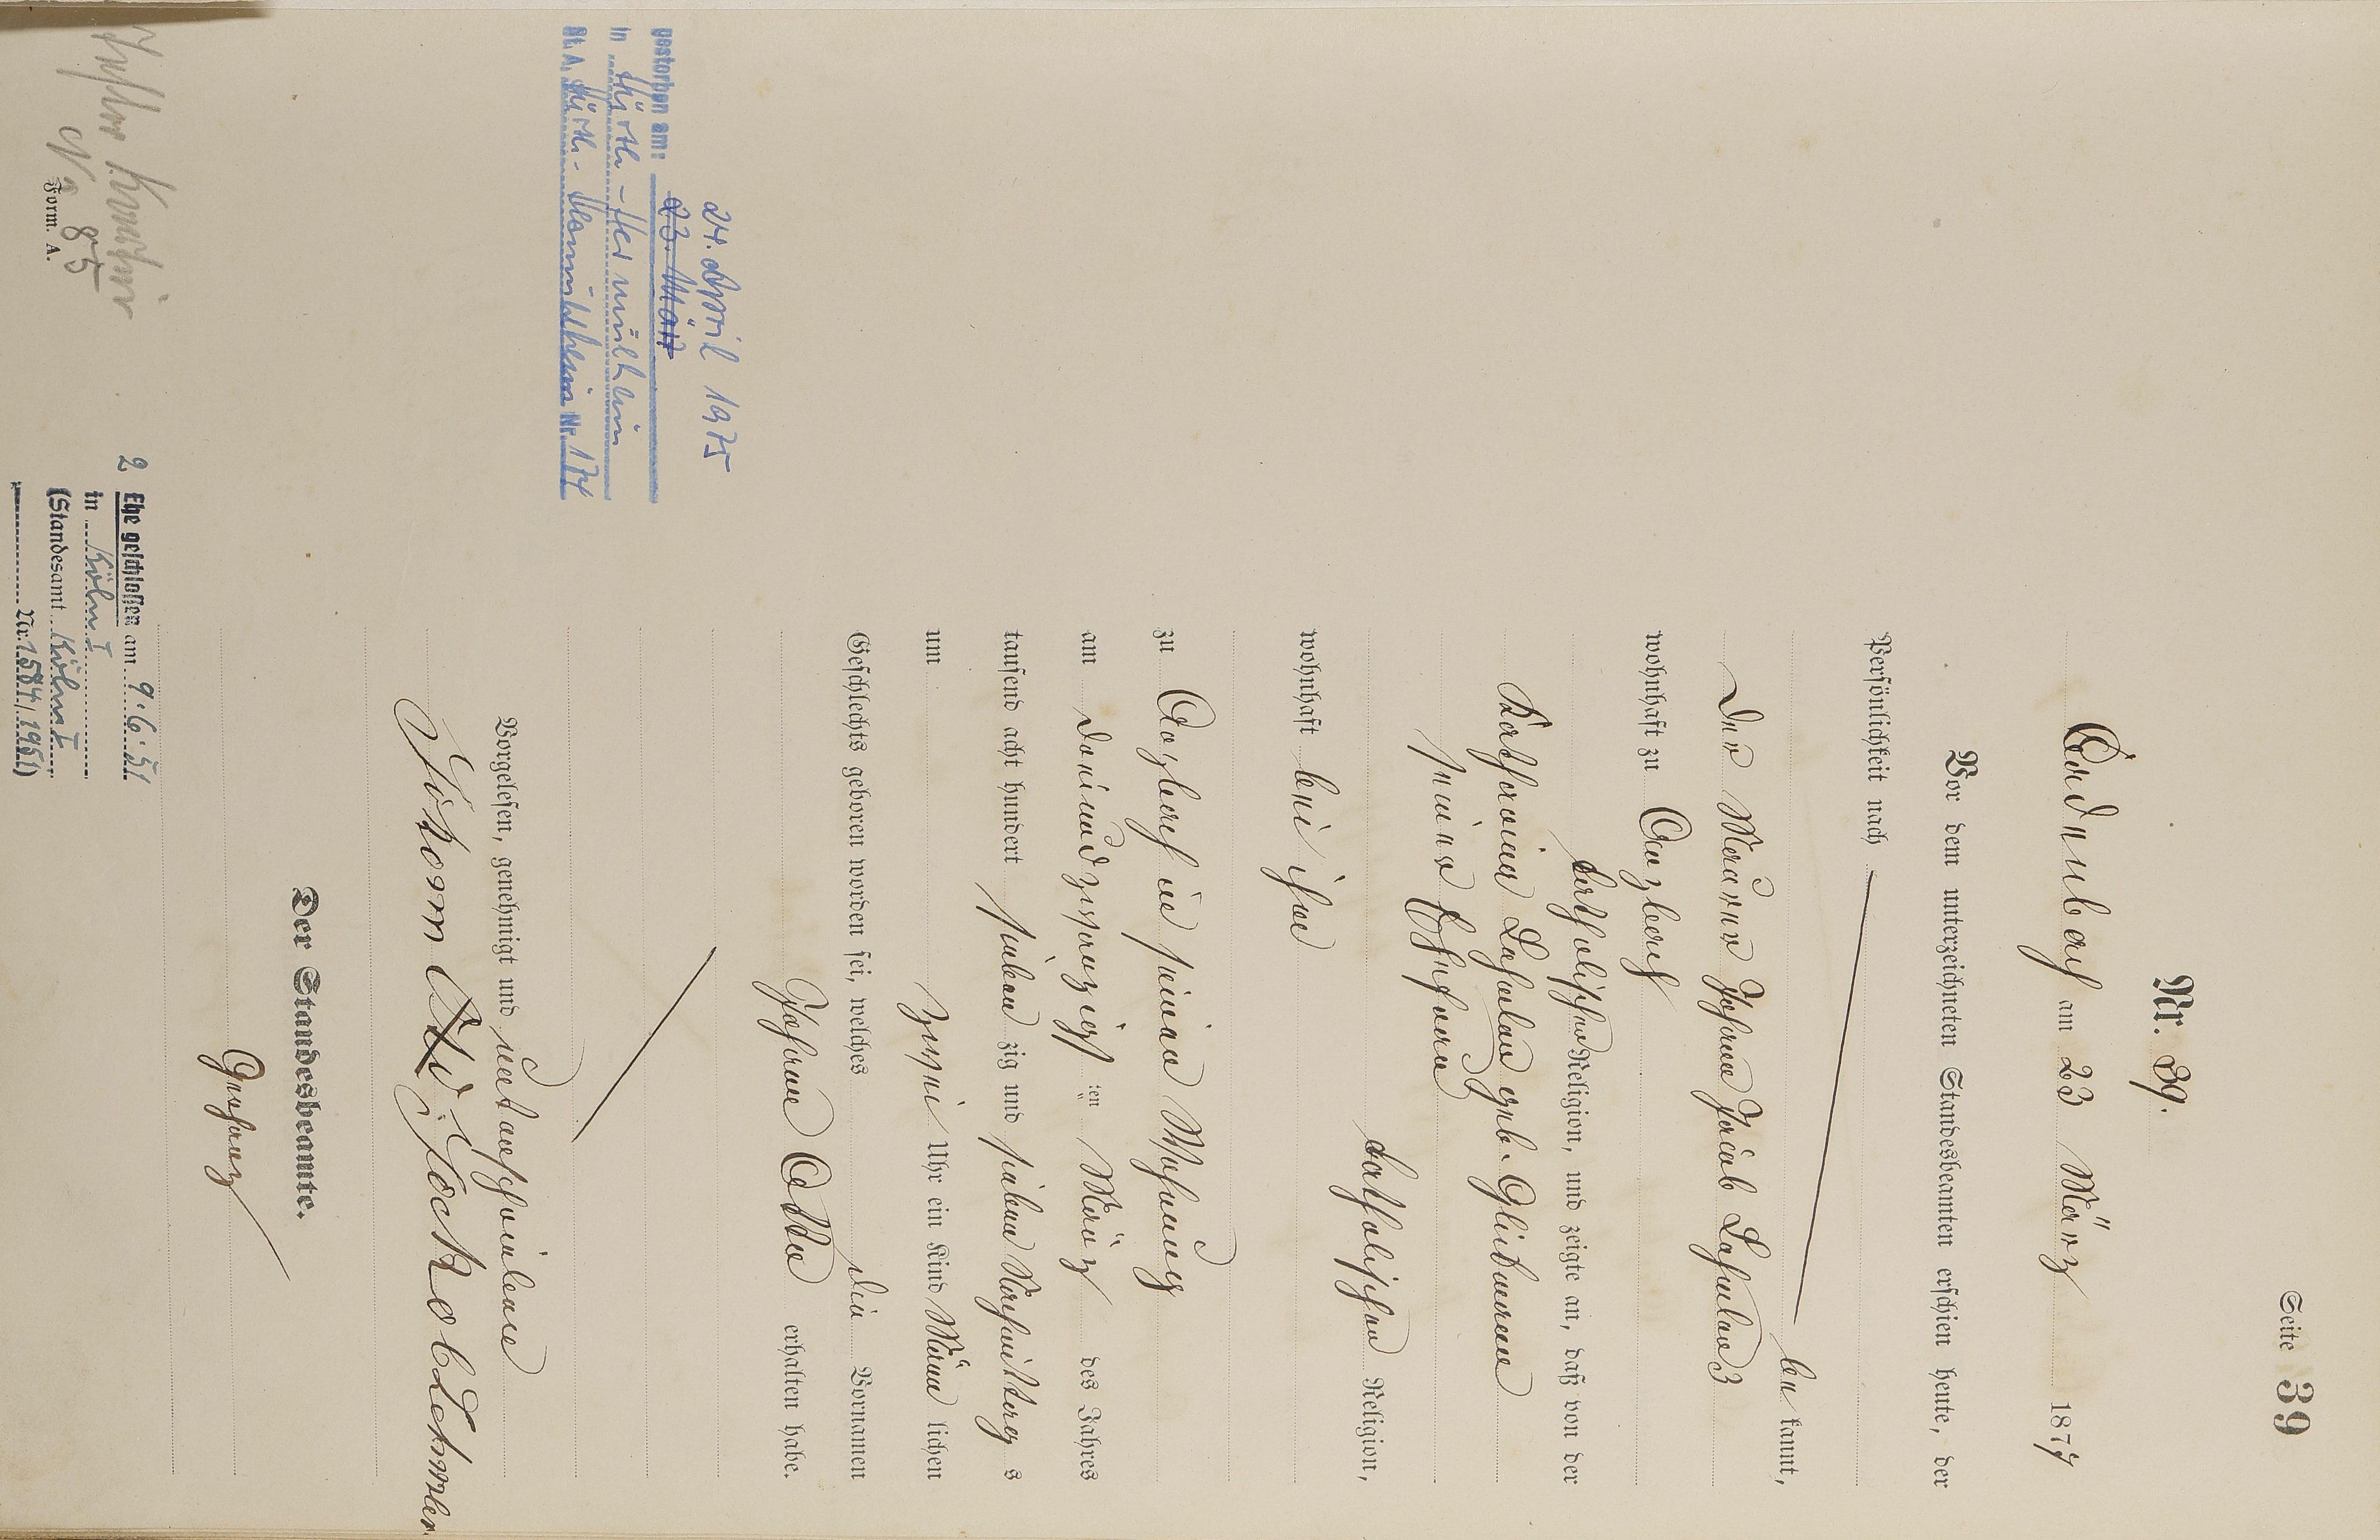 Seite 39
Nr. 39.
am 23 März 1877
Vor dem unterzeichneten Standesbeamten erschien heute, der
Persönlichkeit nach
be kannt,
der Maurer Johann Jacob
wohnhaft zu
katholischer Religion, und zeigte an, daß von der
Katharina geb.
seiner Ehefrau
katholischer Religion,
wohnhaft bei ihm
zu in seiner Wohnung
am dreiundzwanzigsten März des Jahres
tausend acht hundert sieben zig und sieben Nachmittags
um zwei Uhr ein Kind männ lichen
Geschlechts geboren worden sei, welches die Vornamen
Johann Otto erhalten habe.
Vorgelesen, genehmigt und unterschrieben
Johann
Der Standesbeamte.
24. April 1975
gestorben am: 23. März
in Hürth-Hermülheim
St.A. Hürth-Hermülheim Nr. 174
No 85
Form. A.
2 Ehe geschlossen am 9.6.51
in Köln I
(Standesamt Köln I
Nr. 1584/1951)